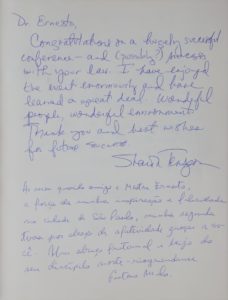 Dr Ernesto,
Congratulations on a hugely successful
conference – and (possibly?) success
with your law. I have enjoyed
the event enormously and have
learned a great deal. Wonderful
people, wonderful environment
Thank you and best wishes
for future success.
Ao meu grande amigo e Mestre Ernesto,
a força da minha inspiração e felicidade
na cidade de São Paulo, minha segunda
terra por abraço de afetividade graças a vo-
cê – Um abraço fraternal e beijo do
seu discípulo norte-